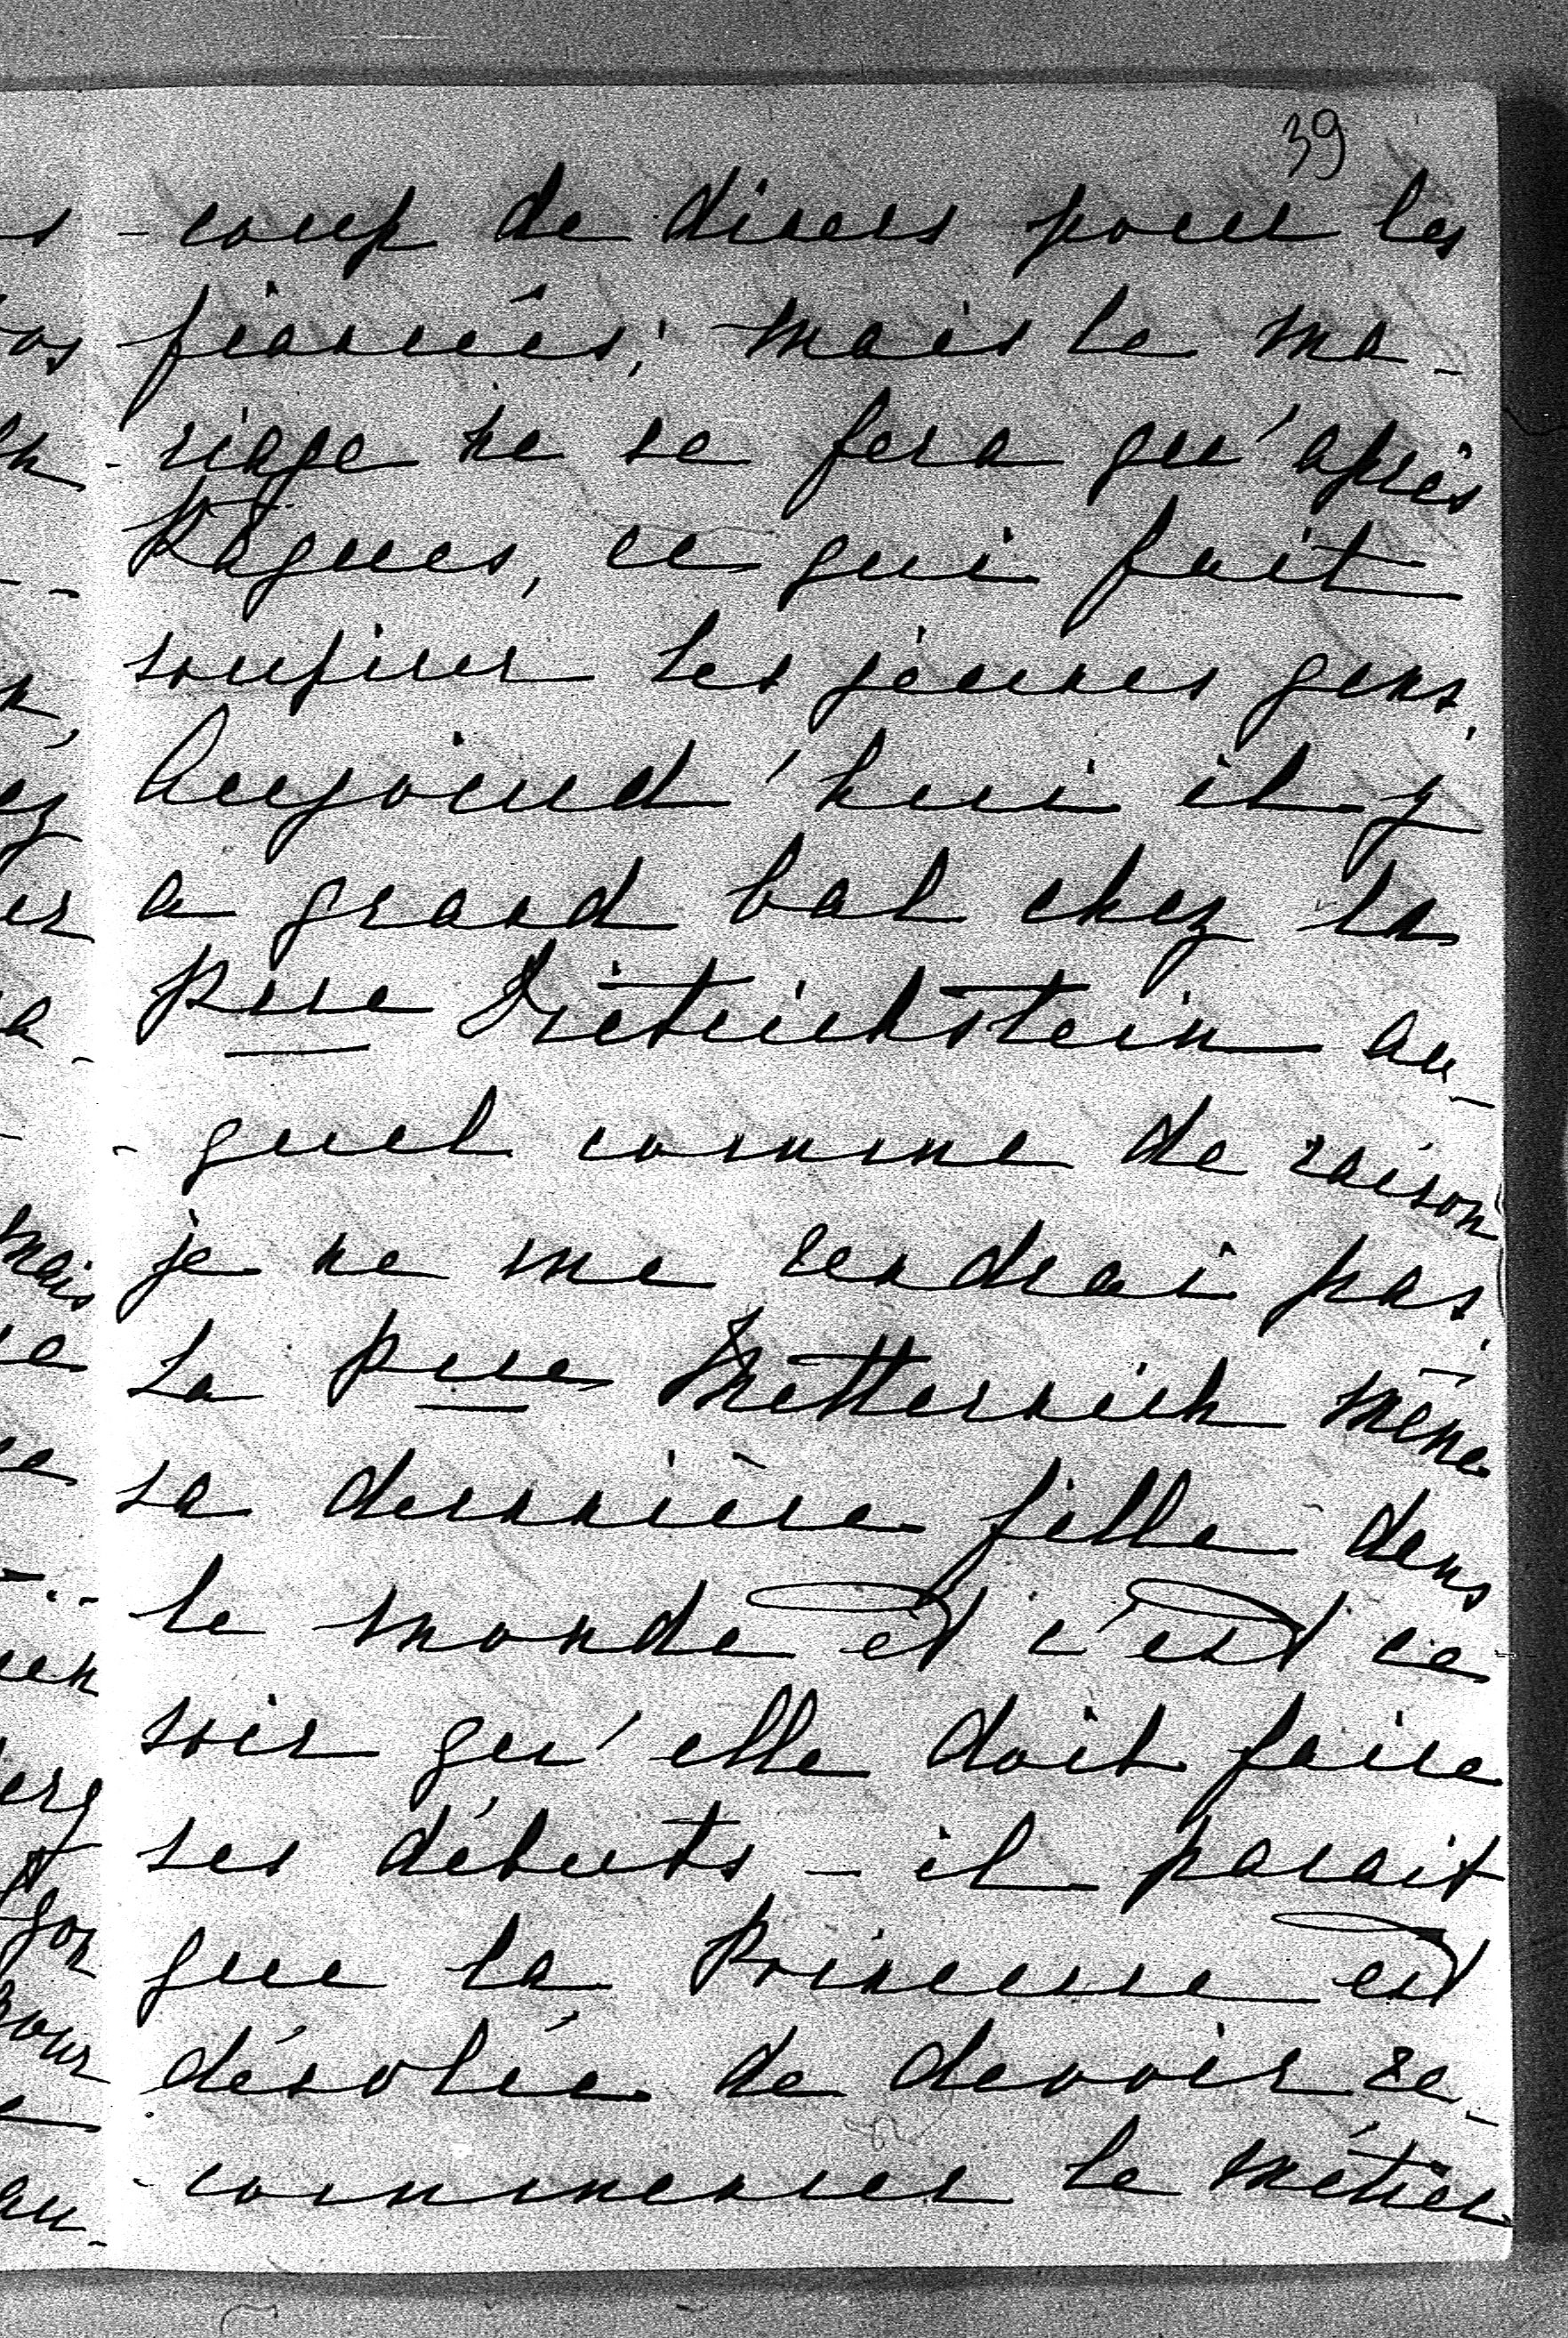 39
- coup de diners pour les
fiancés; mais le ma-
- riage ne se fera qu'après
Pâques, ce qui fait
soupirer les jeunes gens.
Aujourd'hui il y
a grand bal chez la
Psse Dietrichstein au-
- quel comme de raison
je ne me rendrai pas.
La Psse Metternich mène
sa dernière fille dans
le monde et c'est ce
soir qu'elle doit faire
ses débuts - il parait
que la Princesse est
désolée de devoir re-
- commencer le métier